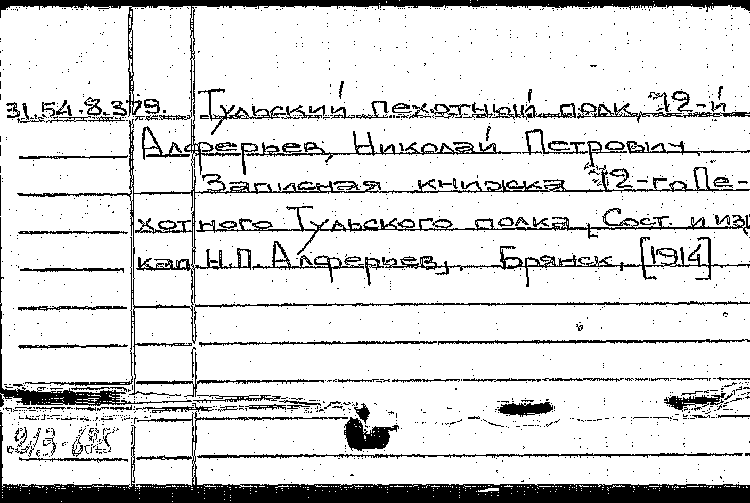 31.54.8.379. Тульский пехотный полк, 72-й
Алферьев, Николай Петрович
Записная книжка 72-го Пе-
хотного Тульского полка, Сост. и изд.
кап. Н.П. Алферьев, Брянск, [1914]